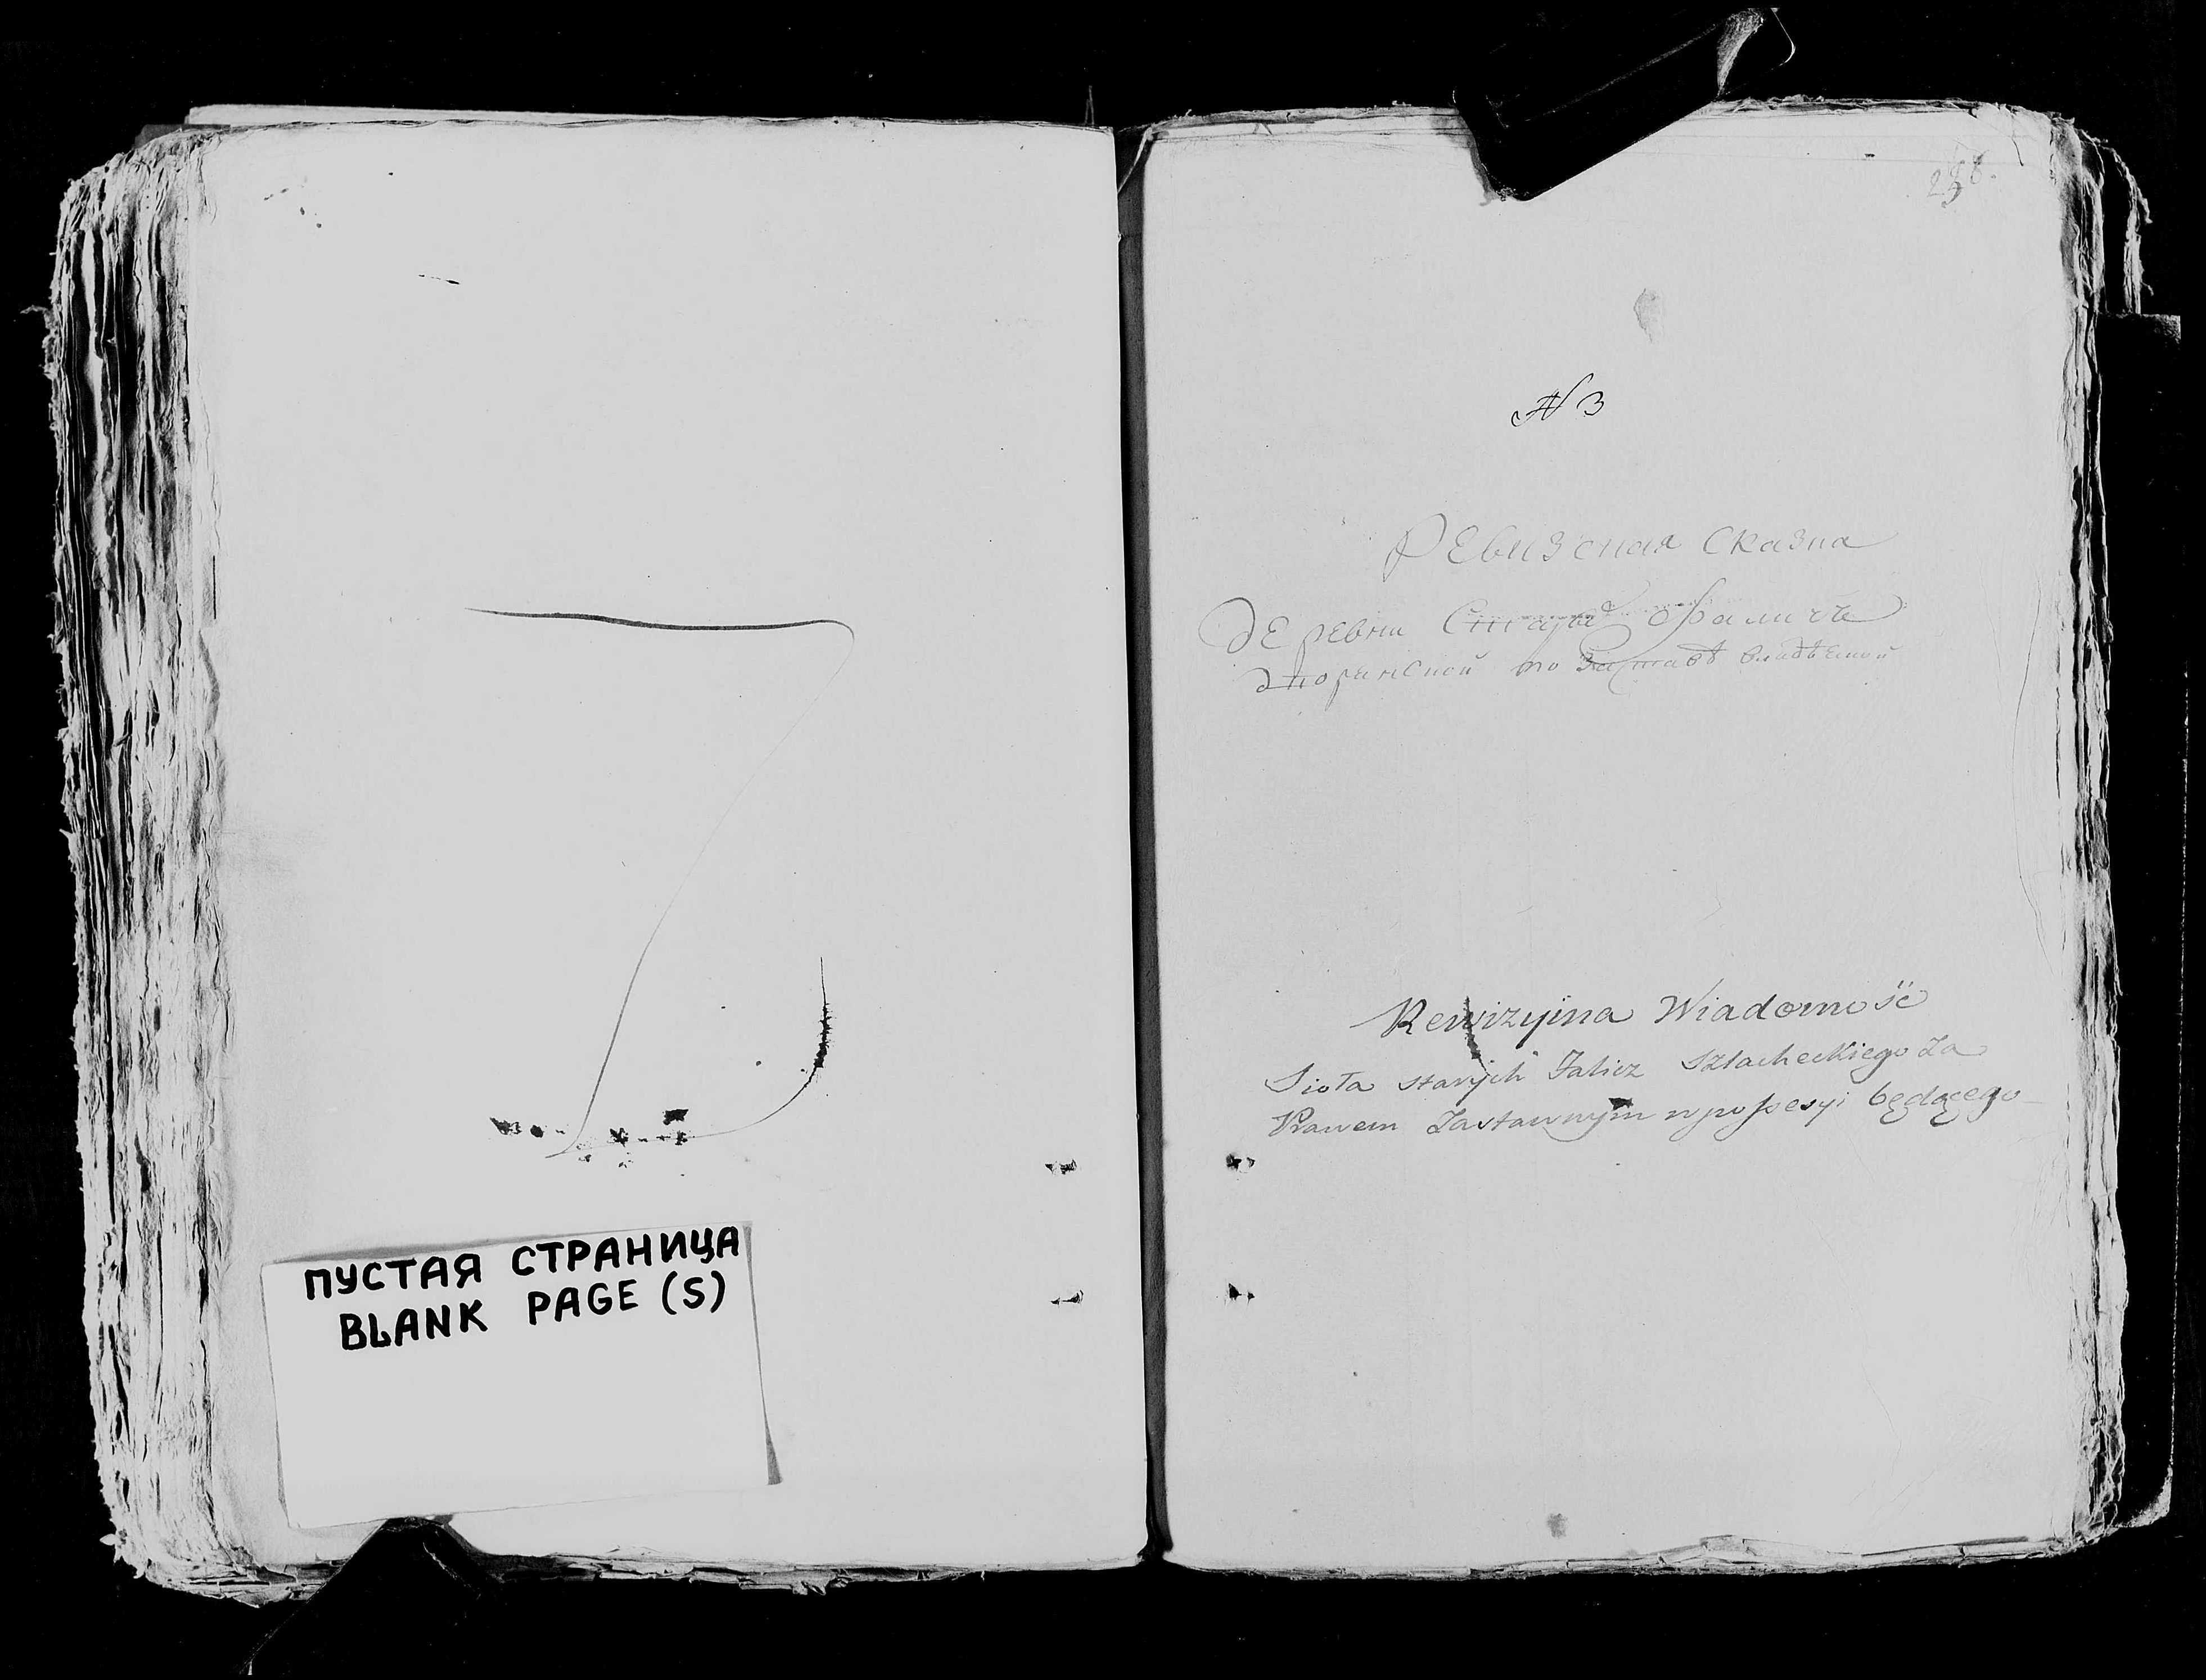 ПУСТАЯ СТРАНИЦА
BLANK PAGE (S)
N 3
Ревизская Сказка
деревни Старые Фаличе
дворянской по Заставѣ владѣемой
Rewizyina Wiadomość
Sioła starych Falicz Szlacheckiego Za
Prawem Zastawnym w possesyi będącego